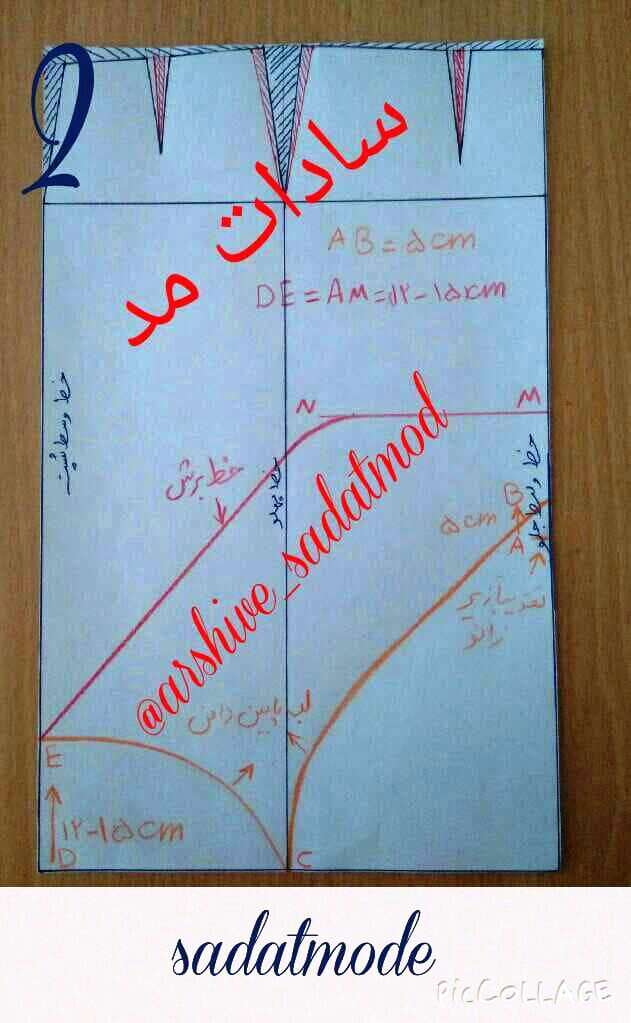 2
سادات مد
AB = ۵cm
DE = AM = ۱۲-۱۵cm
خط وسط پشت
N
M
خط برش
خط پهلو
خط وسط جلو
B
۵cm
A
تقریبا زیر
زانو
@arshive_sadatmod
لب پایین دامن
E
۱۲-۱۵cm
D
C
sadatmode
PicCOLLAGE